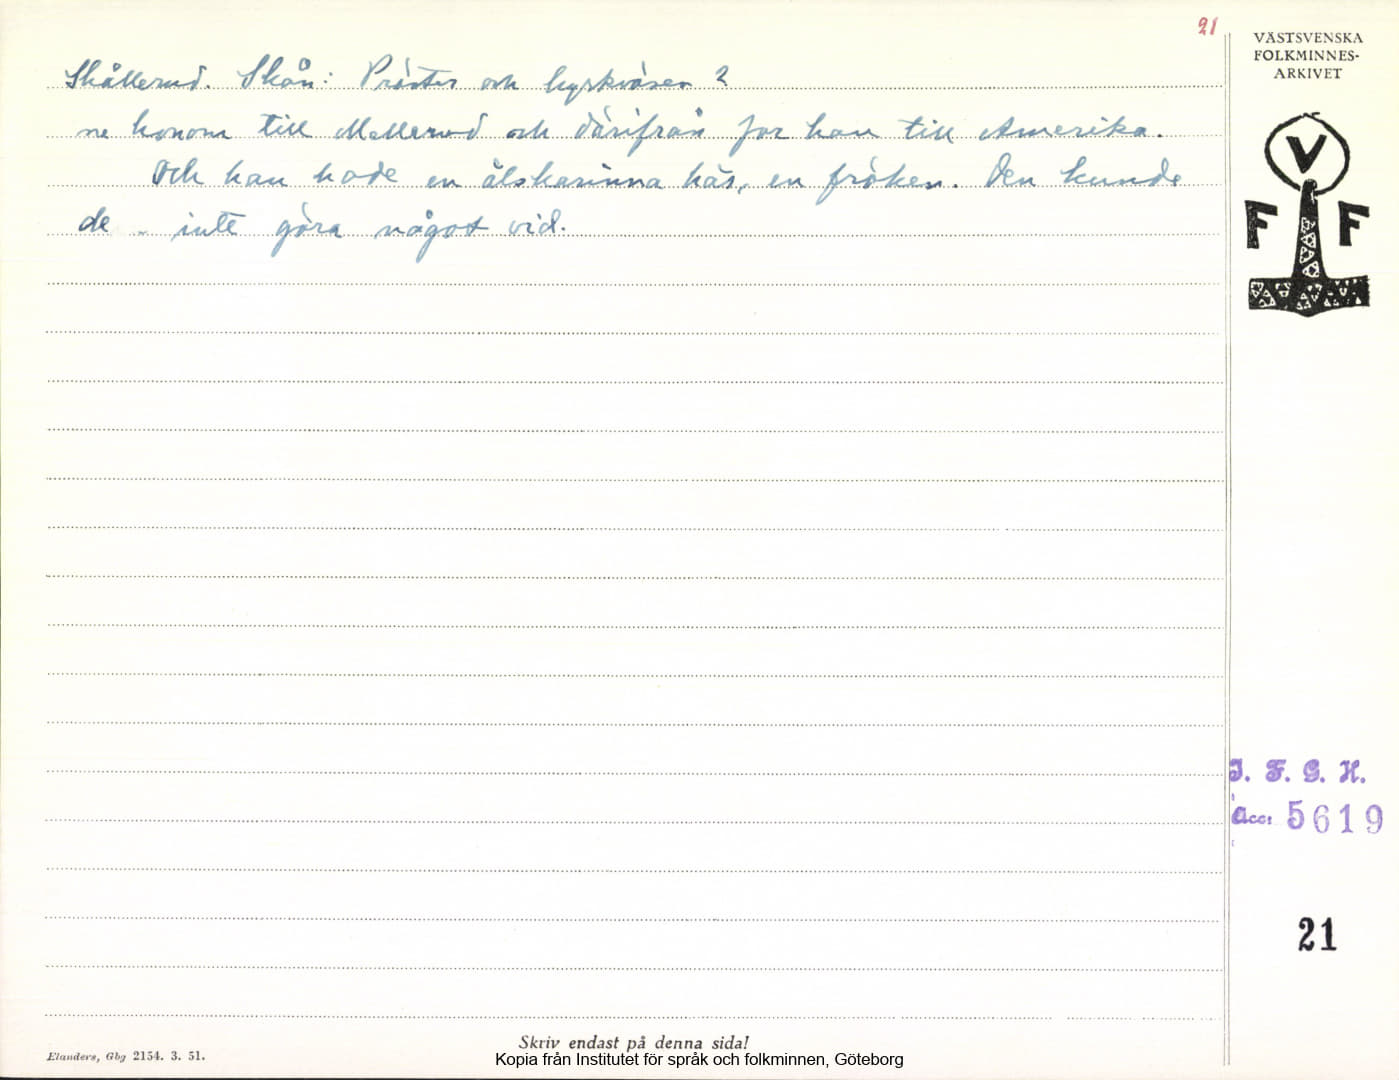 21
VÄSTSVENSKA
FOLKMINNES-
ARKIVET
V
F F
Skållerud. Skån: Präster och kyrkväsen 2
ne honom till Mellerud och därifrån for han till Amerika.
Och han hade en älskarinna här, en fröken. Den kunde
de - inte göra något vid.
I. F. G. H.
Acc: 5619
21
Skriv endast på denna sida!
Elanders, Gbg 2154. 3. 51.
Kopia från Institutet för språk och folkminnen, Göteborg